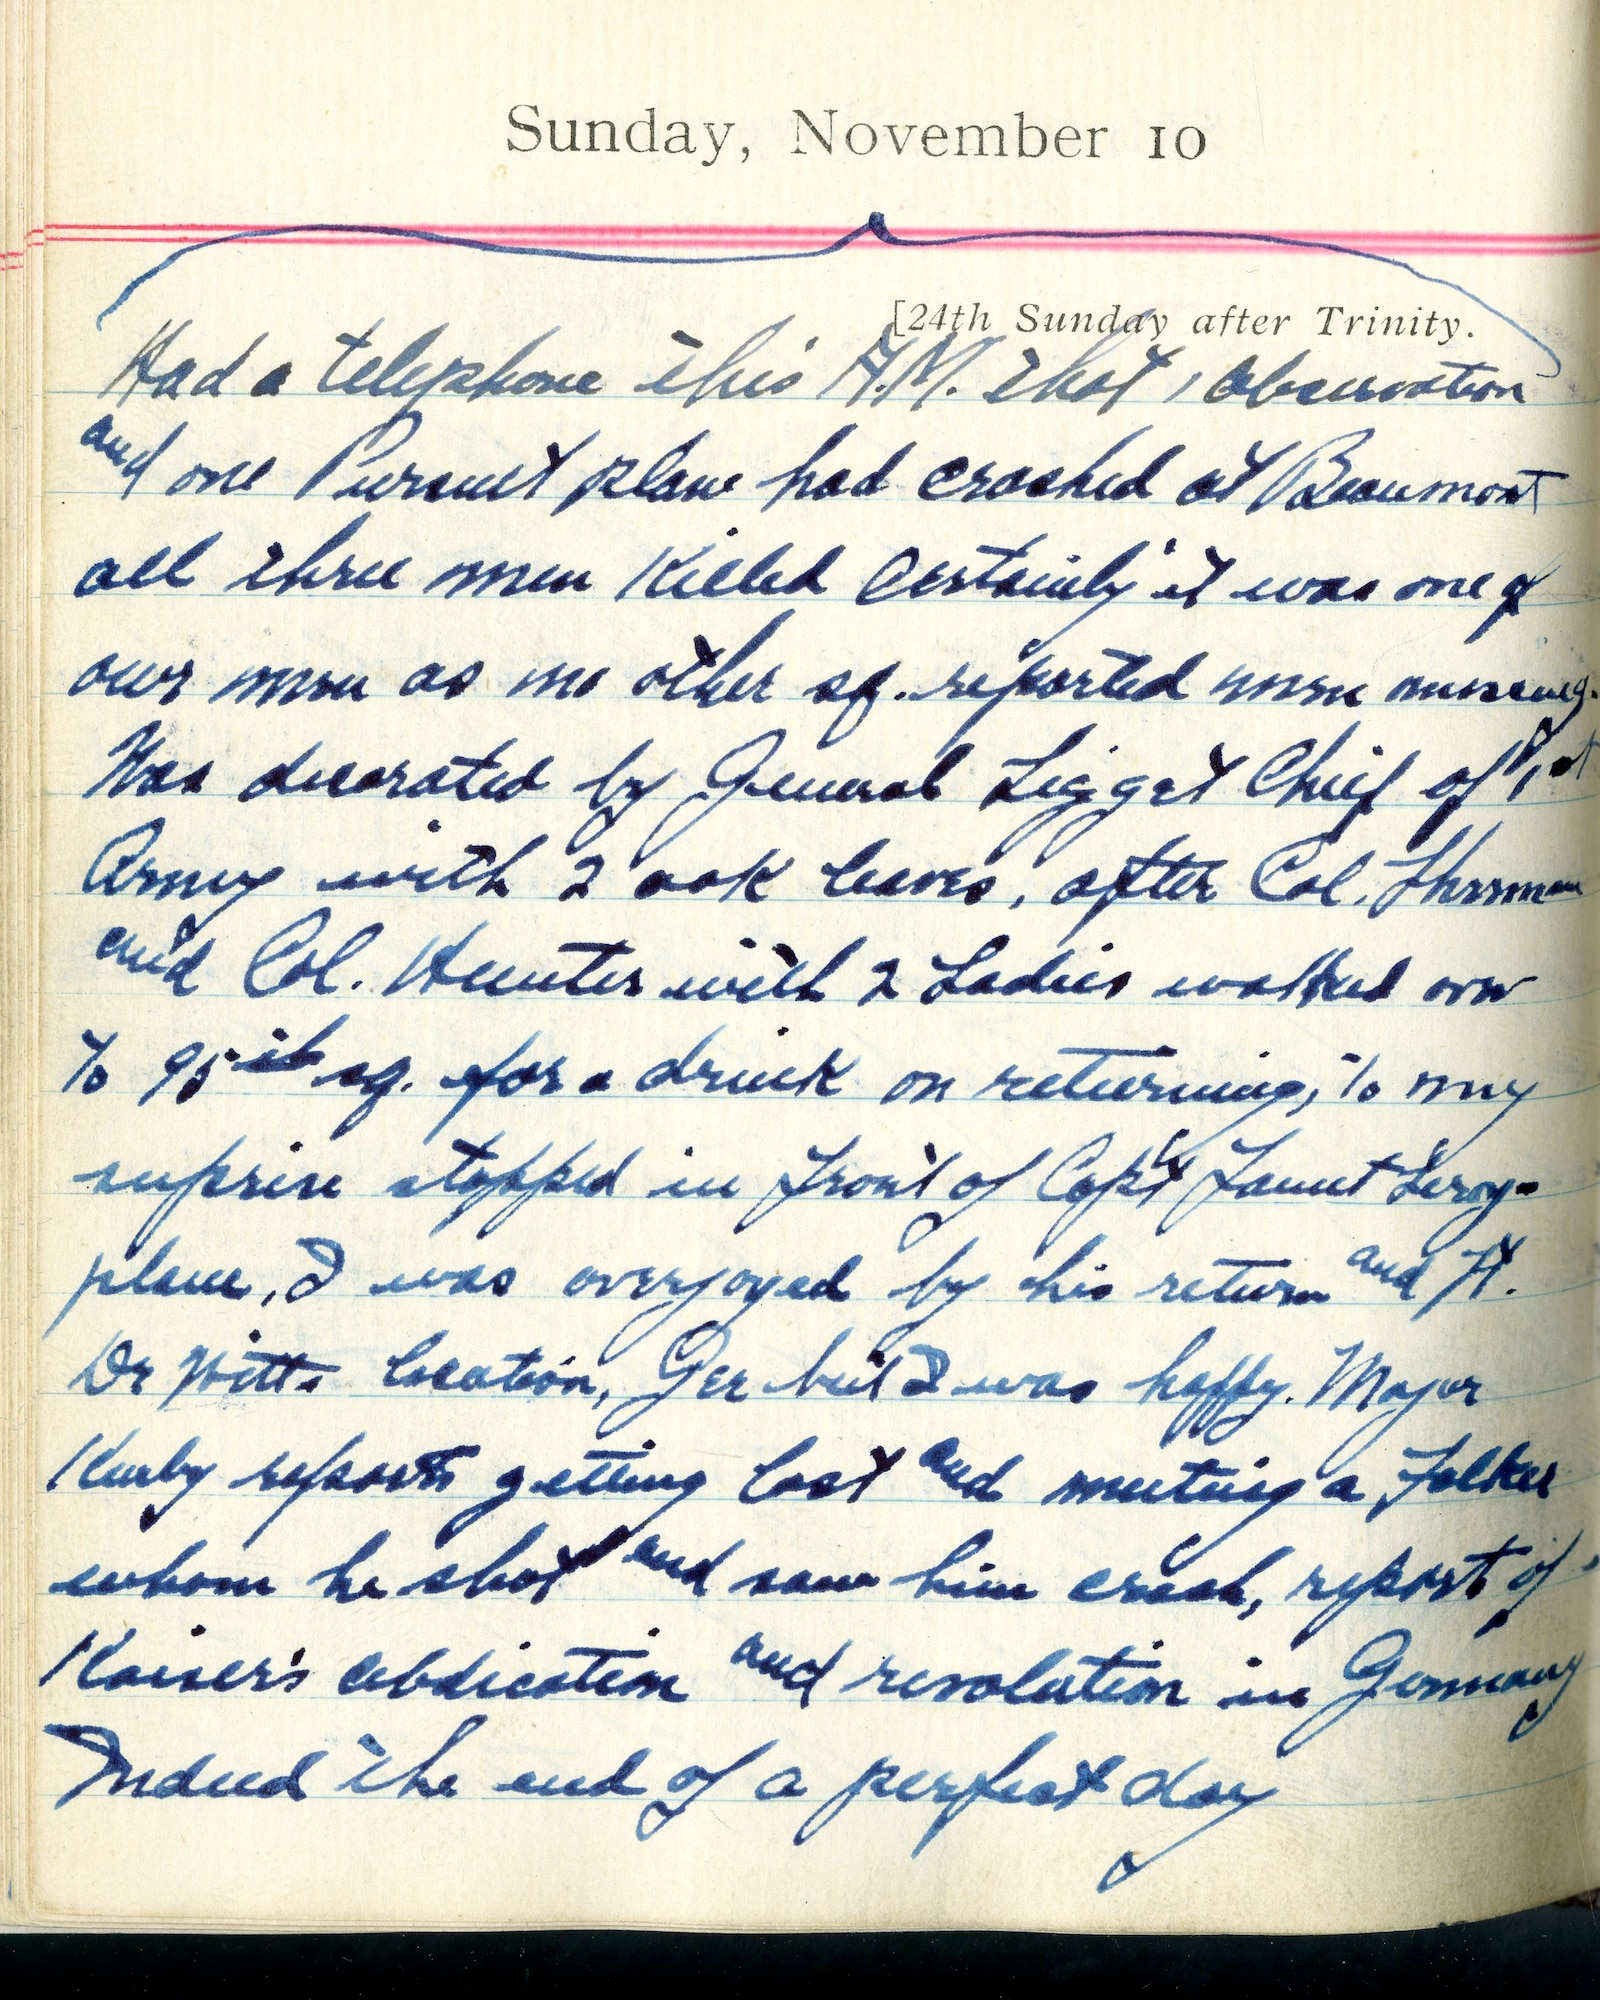 Sunday, November 10
[24th Sunday after Trinity.
Had a telephone this A.M. that 1 observation
and one Pursuit plane had crashed at Beaumont
all three men killed Certainly it was one of
our men as no other sq. reported men missing.
Was decorated by General Ligget Chief of 1st
Army with 2 oak leaves, after Col.
and Col. Hunter with 2 Ladies walked over
to 95th sq. for a drink on returning, to my
suprise stopped in front of Capt
plane, I was overjoyed by his return and Lt.
De Witts location, Gee but I was happy. Major
Kirby reports getting lost and meeting a Folker
whom he shot and saw him crash, report of
Kaiser's abdication and revolution in Germany
Indeed the end of a perfect day